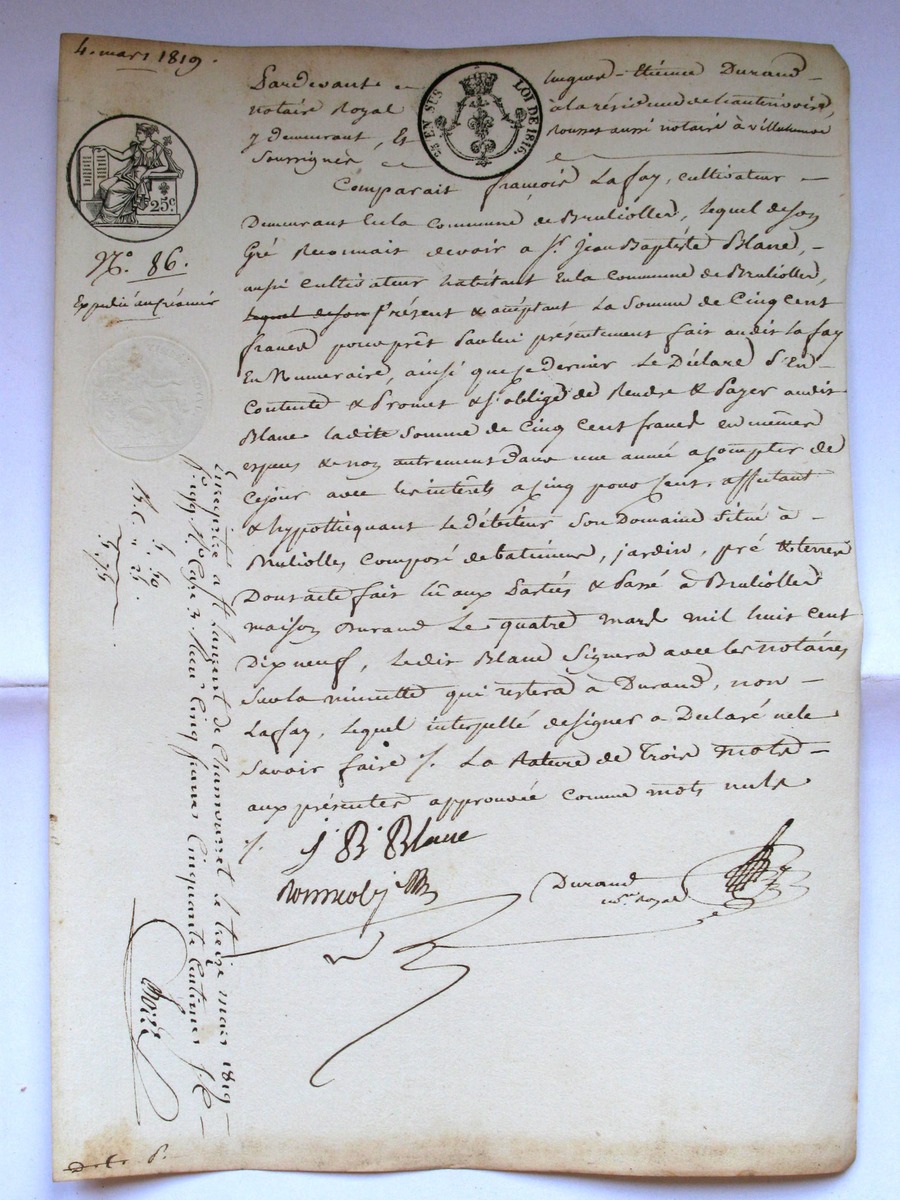 4. mars 1819.
Pardevant Etienne Durand
notaire Royal à la résidence de
y demeurant, Et Rousset aussi notaire à Villechenève
Soussignés
EN SUS
LOI DE 1816.
25c.
Comparait françois Lafay, cultivateur
Demeurant En la Commune de Bruliolles, lequel de son
Gré Reconnait devoir à Sr. Jean Baptiste Blanc,
aussi cultivateur habitant En la Commune de Brulliolles,
lequel de son présent & acceptant La Somme de Cinq Cent
francs pour prêt Par lui présentement fait audit Lafay
En Numeraire, ainsi que ce dernier Le Déclare S'En
Contente & Promet & S'oblige de Rendre & Payer audit
Blanc ladite Somme de Cinq Cent francs en mêmes
especes & non autrement dans une année à compter de
Cejour avec les intérêts a Cinq pour Cent, affectant
& hypothéquant Le débiteur Son Domaine Situé à
Bruliolles Composé de batimens, jardin, pré & terres
Dont acte fait lû aux Parties & Passé à Brulioles
maison Durand Le quatre mars mil huit cent
Dix neuf, Ledit Blanc Signera avec les notaires
Sur la minutte qui restera à Durand, non
Lafay, lequel interpellé de signer a Déclaré ne le
Savoir faire /. La Rature de Trois mots
aux présentes approuvée comme mots nuls
/.
J B Blanc
Durand
nre. Royal
No. 86.
Expedié en Créancier
5. 50
5. 75
Enregistré à St Laurent de Chamousset le treize mars 1819
Cinq francs Cinquante Centimes